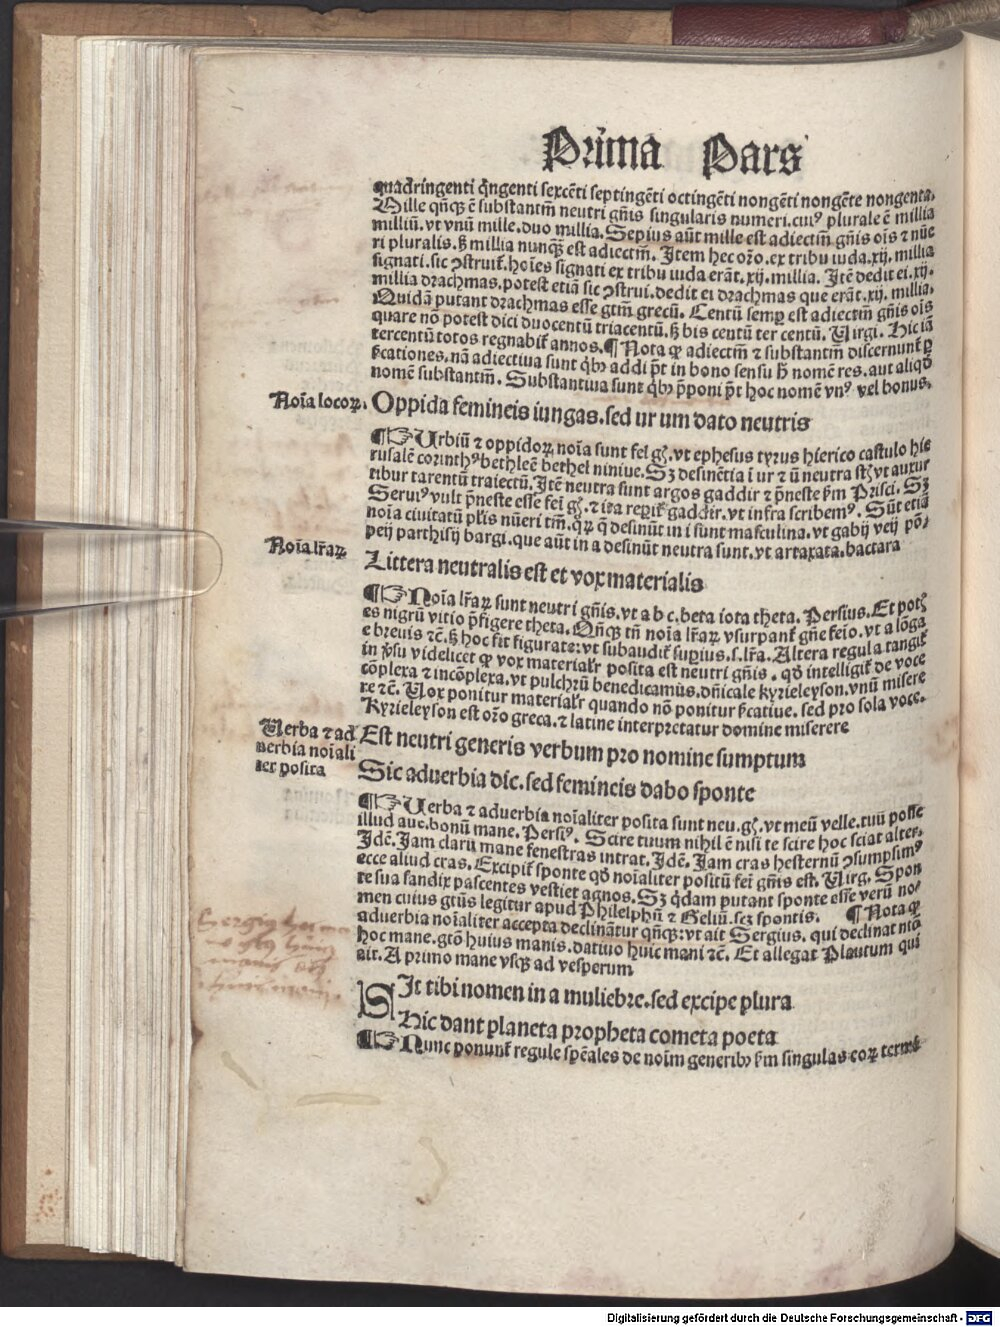 Prima Pars
quadringenti q̄ngenti sexcēti septingēti octingēti nongēti nongēte nongenta.
Mille qñqꝫ ē substantm̄ neutri gñis singularis numeri.cuiꝰ plurale ē millia
milliū.vt vnū mille.duo millia.Sepius aūt mille est adiectm̄ gñis oīs ⁊ nūe
ri pluralis.ꝫ millia nunqꝫ est adiectm̄. Item hec oꝛo.ex tribu iuda.xij. millia
signati.sic ꝯstruit̄.hoīes signati ex tribu iuda erāt.xij.millia. Itē dedit ei.xij.
millia dꝛachmas.potest etiā sic ꝯstrui.dedit ei dꝛachmas que erāt.xij. millia.
Quidā putant dꝛachmas esse gtm̄ grecū. Centū semꝑ est adiectm̄ gñis oīs
quare nō potest dici duocentū triacentū.ꝫ bis centū ter centū. Virgi. Hic iā
tercentū totos regnabit̄ annos.¶ Nota ꝙ adiectm̄ ⁊ substantm̄ discernunt̄ ꝑ
p̄cationes.nā adiectiua sunt qͥbꝰ addi p̄t in bono sensu h̄ nomē res.aut aliqd̄
nomē substantm̄. Substantiua sunt qͥbꝰ p̄poni p̄t hoc nomē vnꝰ vel bonus.
Noīa locoꝝ.
Oppida femineis iungas.sed ur um dato neutris
¶☞Urbiū ⁊ oppidoꝝ noīa sunt fe͞i gꝫ.vt ephesus tyrus hierico castulo hie
rusalē corinthꝰ bethleē bethel niniue.Sꝫ desinētia ī ur ⁊ ū neutra st̄.vt auxur
tibur tarentū traiectū.Itē neutra sunt argos gaddir ⁊ p̄neste ẜm Prisci. Sꝫ
Seruiꝰ vult p̄neste esse feī gꝫ.⁊ ita reꝑit̄ gaddir.vt infra scribemꝰ. Sūt etiā
noīa ciuitatū pl̄is nūeri tm̄.qꝝ q̄ desinūt in i sunt masculina.vt gabij veij pō/
peij parthisij bargi.que aūt in a desinūt neutra sunt.vt artaxata.bactara
Noīa lr̄aꝝ
Littera neutralis est et vox materialis
¶☞Noīa lr̄aꝝ sunt neutri gñis.vt a b c.beta iota theta. Persius.Et potꝫ
es nigrū vitio p̄figere theta. Qñqꝫ tn̄ noīa lr̄aꝝ vsurpant̄ gñe feīo.vt a lōga
e breuis ⁊c.ꝫ hoc fit figurate:vt subaudit̄ supius.s.lr̄a. Altera regula tangit̄
in ꝟsu videlicet ꝙ vox materialr̄ posita est neutri gñis . qd̄ intelligit̄ de voce
cōplexa ⁊ incōplexa.vt pulchꝛū benedicamus.dn̄icale kyrieleyson.vnū misere
re ⁊c. Vox ponitur materialr̄ quando nō ponitur p̄catiue. sed pro sola voce.
Kyrieleyson est oꝛo greca.⁊ latine interpretatur domine miserere
Verba ⁊ ad
uerbia noīali
ter posita
Est neutri generis verbum pro nomine sumptum
Sic aduerbia dic.sed femineis dabo sponte
¶☞Uerba ⁊ aduerbia noīaliter posita sunt neu.gꝫ.vt meū velle.tuū posse
illud aue.bonū mane. Persiꝰ. Scire tuum nihil ē nisi te scire hoc sciat alter.
Idē.Iam clarū mane fenestras intrat.Idē. Iam cras hesternū ꝯsumpsimꝰ
ecce aliud cras. Excipit̄ sponte qd̄ noīaliter positū feī gñis est. Virg. Spon
te sua sandix pascentes vestiet agnos. Sꝫ q̄dam putant sponte esse verū no/
men cuius gt̄us legitur apud Philelphū ⁊ Geliū.scꝫ spontis. ¶ Nota ꝙ
aduerbia noīaliter accepta declinātur qñqꝫ:vt ait Sergius. qui declinat nōā
hoc mane.gtō huius manis.datiuo huic mani ⁊c. Et allegat Plautum qui
ait. A primo mane vsqꝫ ad vesperum
Sit tibi nomen in a muliebꝛe.sed excipe plura
Hic dant planeta propheta cometa poeta
¶☞Nunc ponunt̄ regule spēales de noīm generibꝰ ẜm singulas eoꝝ termī